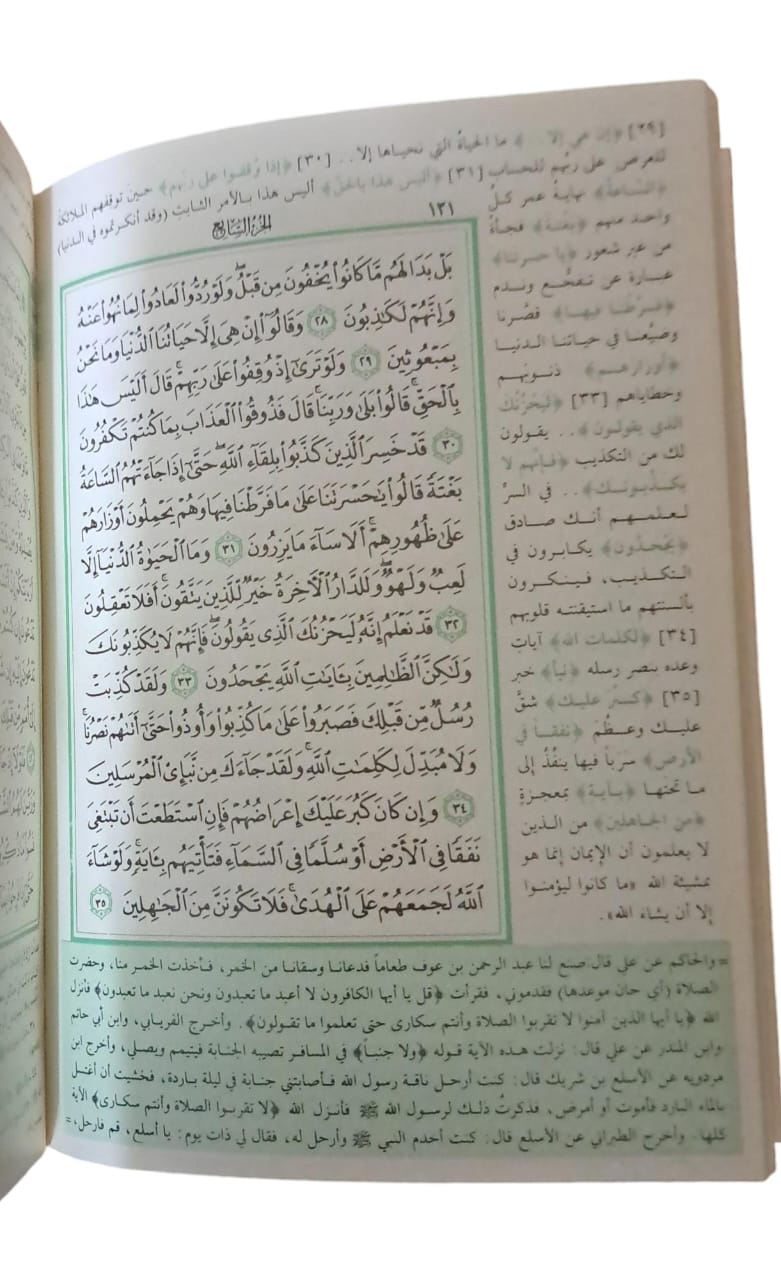 [٢٩] ﴿إن هي إلا..﴾ ما الحياةُ التي نحياها إلا.. [٣٠] ﴿إذا وُقفوا على ربهم﴾ حين توقفهم الملائكة
للعرض على ربهم للحساب [٣١] ﴿أليس هذا بالحق﴾ أليس هذا بالأمر الثابت (وقد أنكرتموه في الدنيا)
١٣١
الجزء السابع
﴿الساعة﴾ نهايةُ عمر كلِّ
واحد منهم ﴿بغتة﴾ فجأةً
من غير شعور ﴿يا حسرتنا﴾
عبارة عن تفجُّع وندم
﴿فرَّطنا فيها﴾ قصَّرنا
وضيَّعنا في حياتنا الدنيا
﴿أوزارهم﴾ ذنوبهم
وخطاياهم [٣٣] ﴿ليَحْزُنك
الذي يقولون﴾.. يقولون
لك من التكذيب ﴿فإنهم لا
يكذبونك﴾.. في السرِّ
لعلمهم أنك صادق
﴿يجحدون﴾ يكابرون في
التكذيب، فينكرون
بألسنتهم ما استيقنته قلوبهم
[٣٤] ﴿لكلمات الله﴾ آيات
وعده بنصر رسله ﴿نبأ﴾ خبر
[٣٥] ﴿كبُر عليك﴾ شقَّ
عليك وعظُمَ ﴿نفقاً في
الأرض﴾ سرَباً فيها ينفُذُ إلى
ما تحتها ﴿بآية﴾ بمعجزةٍ
﴿من الجاهلين﴾ من الذين
لا يعلمون أن الإيمان إنما هو
بمشيئة الله «ما كانوا ليؤمنوا
إلا أن يشاء الله».
بَلْ بَدَا لَهُم مَّا كَانُوا۟ يُخْفُونَ مِن قَبْلُ ۖ وَلَوْ رُدُّوا۟ لَعَادُوا۟ لِمَا نُهُوا۟ عَنْهُ
وَإِنَّهُمْ لَكَٰذِبُونَ ٢٨ وَقَالُوٓا۟ إِنْ هِىَ إِلَّا حَيَاتُنَا ٱلدُّنْيَا وَمَا نَحْنُ
بِمَبْعُوثِينَ ٢٩ وَلَوْ تَرَىٰٓ إِذْ وُقِفُوا۟ عَلَىٰ رَبِّهِمْ ۚ قَالَ أَلَيْسَ هَٰذَا
بِٱلْحَقِّ ۚ قَالُوا۟ بَلَىٰ وَرَبِّنَا ۚ قَالَ فَذُوقُوا۟ ٱلْعَذَابَ بِمَا كُنتُمْ تَكْفُرُونَ
٣٠ قَدْ خَسِرَ ٱلَّذِينَ كَذَّبُوا۟ بِلِقَآءِ ٱللَّهِ ۖ حَتَّىٰٓ إِذَا جَآءَتْهُمُ ٱلسَّاعَةُ
بَغْتَةً قَالُوا۟ يَٰحَسْرَتَنَا عَلَىٰ مَا فَرَّطْنَا فِيهَا وَهُمْ يَحْمِلُونَ أَوْزَارَهُمْ
عَلَىٰ ظُهُورِهِمْ ۚ أَلَا سَآءَ مَا يَزِرُونَ ٣١ وَمَا ٱلْحَيَوٰةُ ٱلدُّنْيَآ إِلَّا
لَعِبٌ وَلَهْوٌ ۖ وَلَلدَّارُ ٱلْءَاخِرَةُ خَيْرٌ لِّلَّذِينَ يَتَّقُونَ ۗ أَفَلَا تَعْقِلُونَ
٣٢ قَدْ نَعْلَمُ إِنَّهُۥ لَيَحْزُنُكَ ٱلَّذِى يَقُولُونَ ۖ فَإِنَّهُمْ لَا يُكَذِّبُونَكَ
وَلَٰكِنَّ ٱلظَّٰلِمِينَ بِـَٔايَٰتِ ٱللَّهِ يَجْحَدُونَ ٣٣ وَلَقَدْ كُذِّبَتْ
رُسُلٌ مِّن قَبْلِكَ فَصَبَرُوا۟ عَلَىٰ مَا كُذِّبُوا۟ وَأُوذُوا۟ حَتَّىٰٓ أَتَىٰهُمْ نَصْرُنَا ۚ
وَلَا مُبَدِّلَ لِكَلِمَٰتِ ٱللَّهِ ۚ وَلَقَدْ جَآءَكَ مِن نَّبَإِى۟ ٱلْمُرْسَلِينَ
٣٤ وَإِن كَانَ كَبُرَ عَلَيْكَ إِعْرَاضُهُمْ فَإِنِ ٱسْتَطَعْتَ أَن تَبْتَغِىَ
نَفَقًا فِى ٱلْأَرْضِ أَوْ سُلَّمًا فِى ٱلسَّمَآءِ فَتَأْتِيَهُم بِـَٔايَةٍ ۚ وَلَوْ شَآءَ
ٱللَّهُ لَجَمَعَهُمْ عَلَى ٱلْهُدَىٰ ۚ فَلَا تَكُونَنَّ مِنَ ٱلْجَٰهِلِينَ ٣٥
= والحاكم عن علي قال صنع لنا عبد الرحمن بن عوف طعاماً فدعانا وسقانا من الخمر، فأخذت الخمر منا، وحضرت
الصلاة (أي حان موعدها) فقدموني، فقرأت ﴿قل يا أيها الكافرون لا أعبد ما تعبدون ونحن نعبد ما تعبدون﴾ فأنزل
الله ﴿يا أيها الذين آمنوا لا تقربوا الصلاة وأنتم سكارى حتى تعلموا ما تقولون﴾. وأخرج الفريابي، وابن أبي حاتم
وابن المنذر عن علي قال: نزلت هذه الآية قوله ﴿ولا جنباً﴾ في المسافر تصيبه الجنابة فيتيمم ويصلي، وأخرج ابن
مردويه عن الأسلع بن شريك قال: كنت أرحل ناقة رسول الله فأصابتني جنابة في ليلة باردة، فخشيت أن أغتسل
بالماء البارد فأموت أو أمرض، فذكرتُ ذلك لرسول الله ﷺ فأنزل الله ﴿لا تقربوا الصلاة وأنتم سكارى﴾ الآية
كلها. وأخرج الطبراني عن الأسلع قال: كنت أخدم النبي ﷺ وأرحل له، فقال لي ذات يوم: يا أسلع، قم فارحل، =